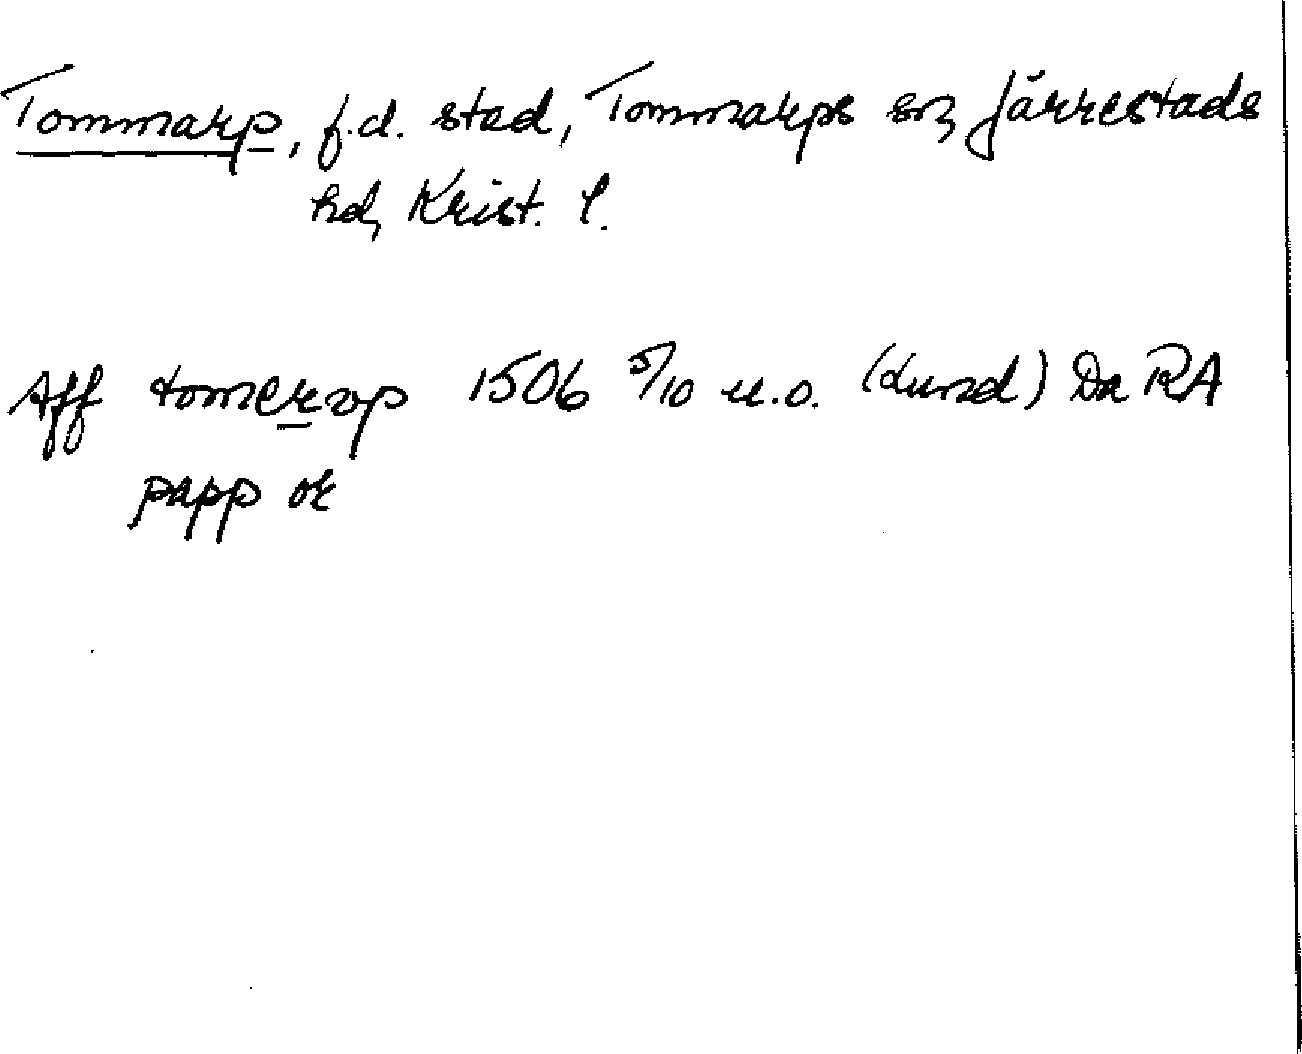 Tommarp, f.d. stad, Tommarps sn, Järrestads
hd, Krist. l.
Aff tomerop 1506 5/10 u.o. (Lund) Da RA
papp or